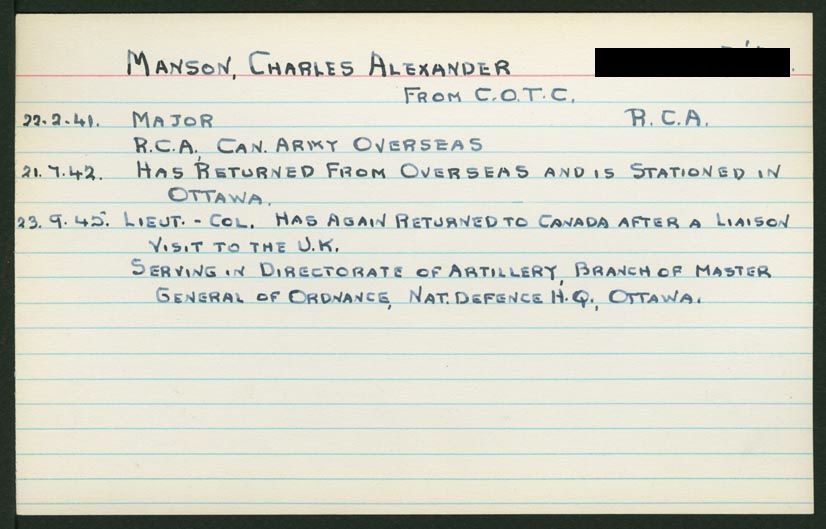 MANSON, CHARLES ALEXANDER
FROM C.O.T.C.
22.2.41. MAJOR R.C.A.
R.C.A. CAN. ARMY OVERSEAS
21.7.42. HAS RETURNED FROM OVERSEAS AND IS STATIONED IN
OTTAWA.
23.9.45. LIEUT.-COL. HAS AGAIN RETURNED TO CANADA AFTER A LIAISON
VISIT TO THE U.K.
SERVING IN DIRECTORATE OF ARTILLERY, BRANCH OF MASTER
GENERAL OF ORDNANCE, NAT. DEFENCE H.Q., OTTAWA.